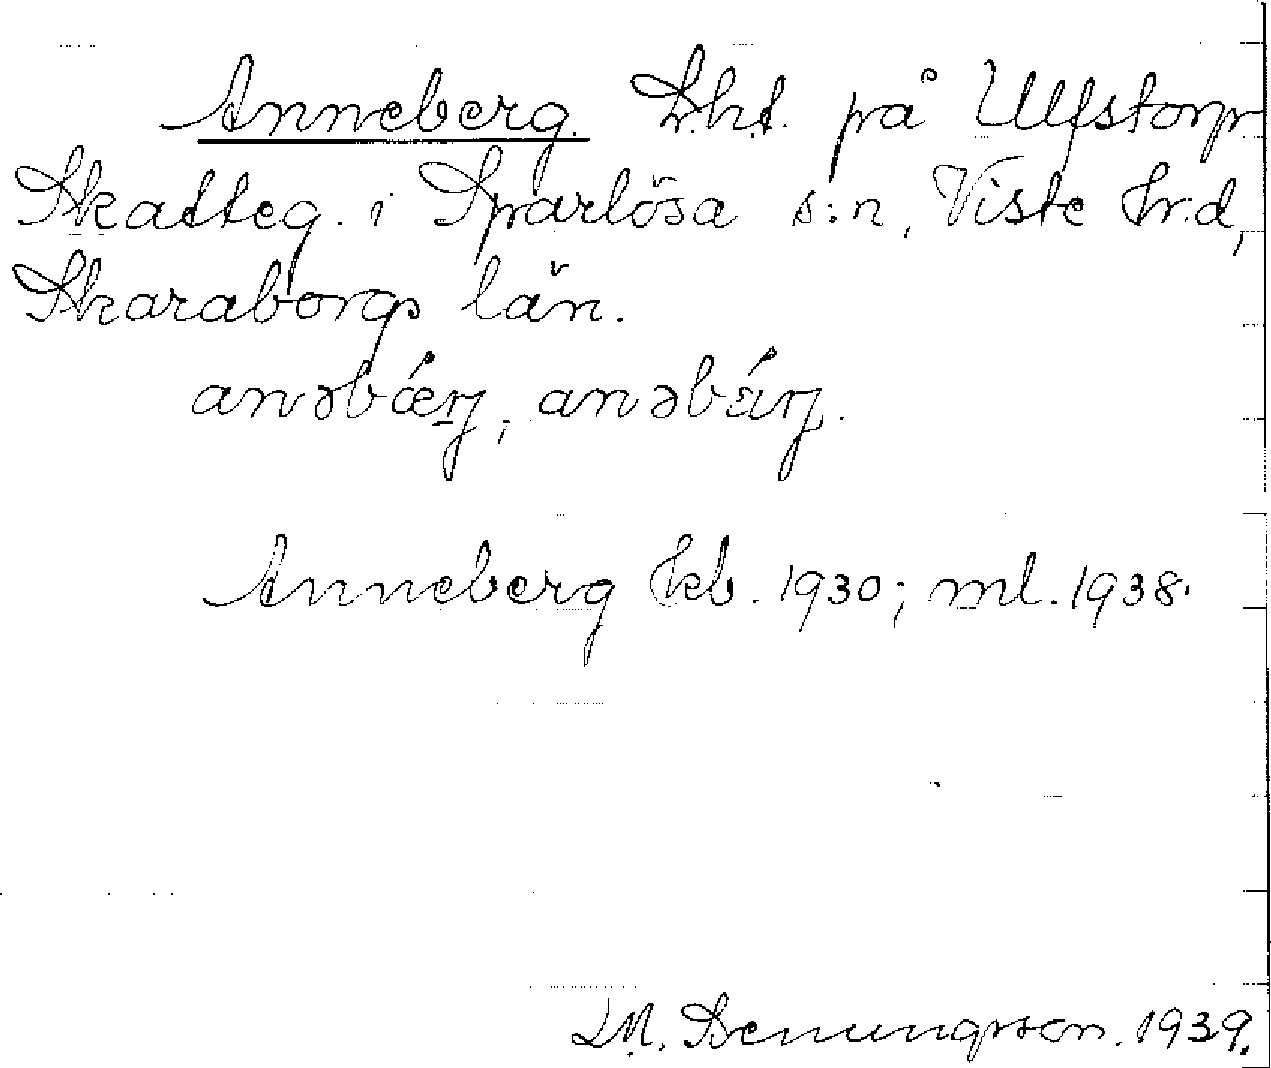 Anneberg. Lht. på Ulfstorp
Skatteg. i Sparlösa s:n, Viste hr.d,
Skaraborgs län.
anəbǽrj, anəbǽrj.
Anneberg kb. 1930; ml. 1938.
1939.